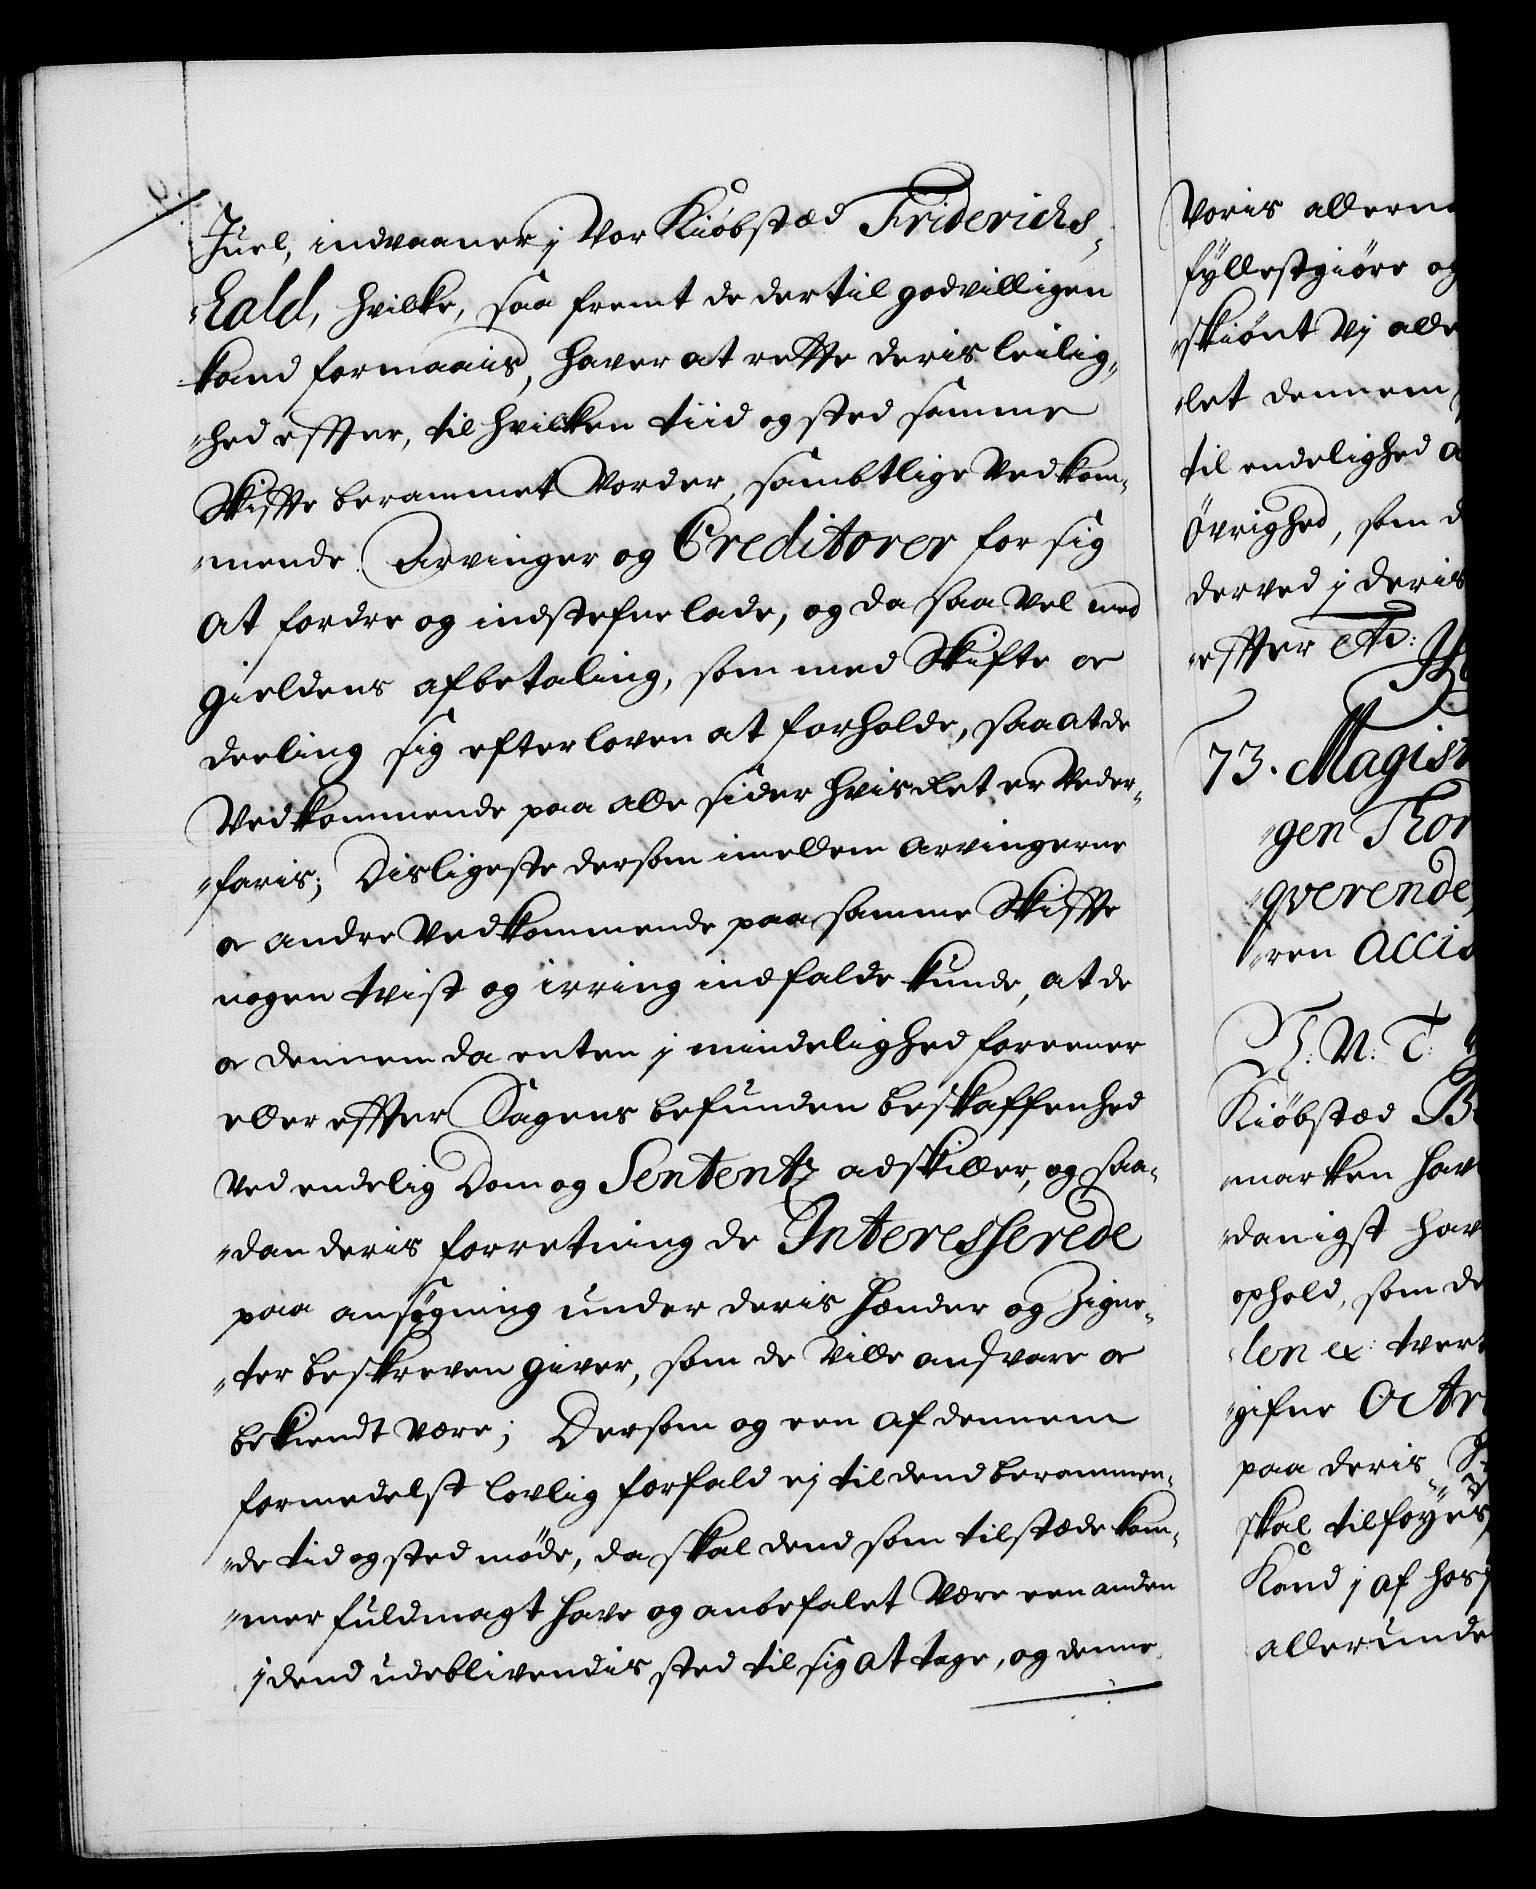 Juel, indvaaner j Vor Kiøbstæd Friderichs-
-Hald, hvilke, saa fremt de dertil godvilligen
kand formaais, haver at rette deris leilig-
-hed effter, til hvilken tiid og sted samme
Skiffte berammet Vorder, sambtlige Vedkom-
-mende Arvinger og Creditorer for sig
at fordre og indstefne lade, og da saa Vel med
gieldens afbetaling, som med Skifte oc
deeling sig efter loven at forholde, saa at de
Vedkommende paa alle sider hvis Ret er Veder-
-faris; Disligeste dersom imellem Arvingerne
oc andre Vedkommende paa samme Skiffte
nogen tvist og irring indfalde kunde, at de
oc dennem da enten j mindelighed foreener
eller effter Sagens befunden beskaffenhed
Ved endelig Dom og Sententz adskiller, og saa-
-dan deris forretning de Interesserede
paa ansøgning under deris Hænder og Zigne-
-ter beskreven giver, som de Ville andsvare oc
bekiendt være; Dersom og een af dennem
formedelst lovlig forfald ej til dend berammen-
-de tid og sted møde, da skal dend som tilstæde kom-
-mer fuldmagt have og anbefalet Være een anden
j dend udeblivendis sted til sig at tage, og denne
Voris allern
fyllestgiøre og
skiønt Vj alle
-let dennem
til endelighed
Øvrighed, som d
derved j deris
effter etc:
73. Magist
-gen Thor
-qverende,
-ren Accis
T: N: T:
Kiøbstæd B
-marken hav
-danigst hav
ophold, som de
-len ex: tvert
-gifne
paa deris
skal tilføyes,
Kand j af hos
allerunde